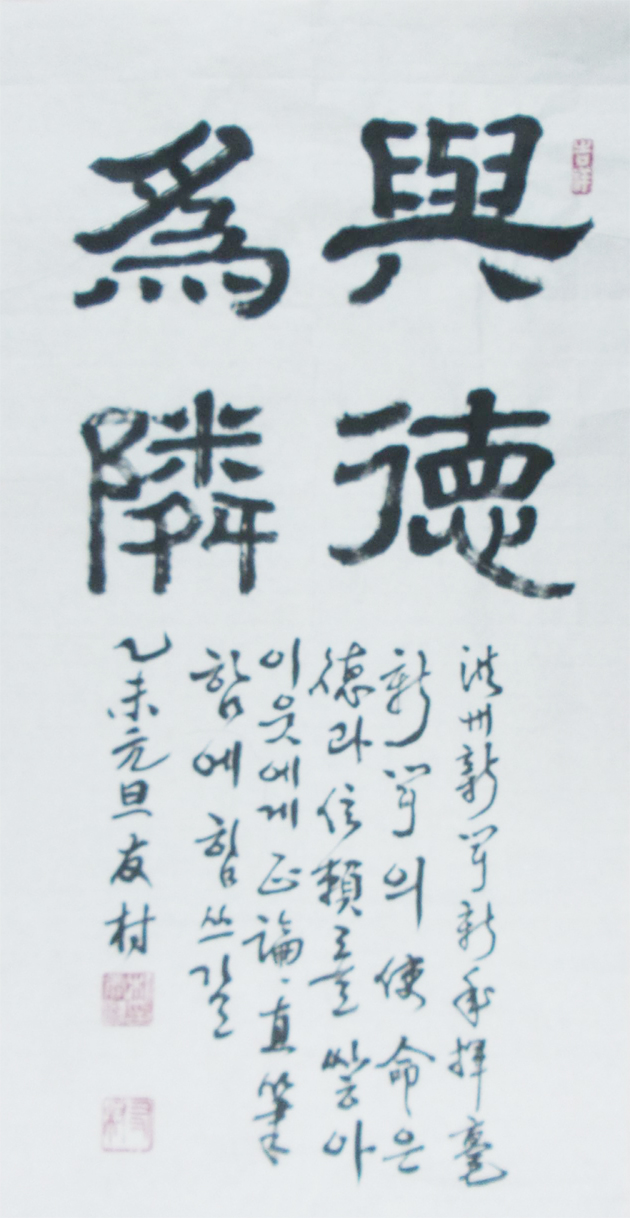 吉祥
與德
爲隣
洪州新聞新年揮毫
新聞의 使命은
德과 信賴를 쌓아
이웃에게 正論·直筆
함에 힘쓰길
乙未元旦 友村